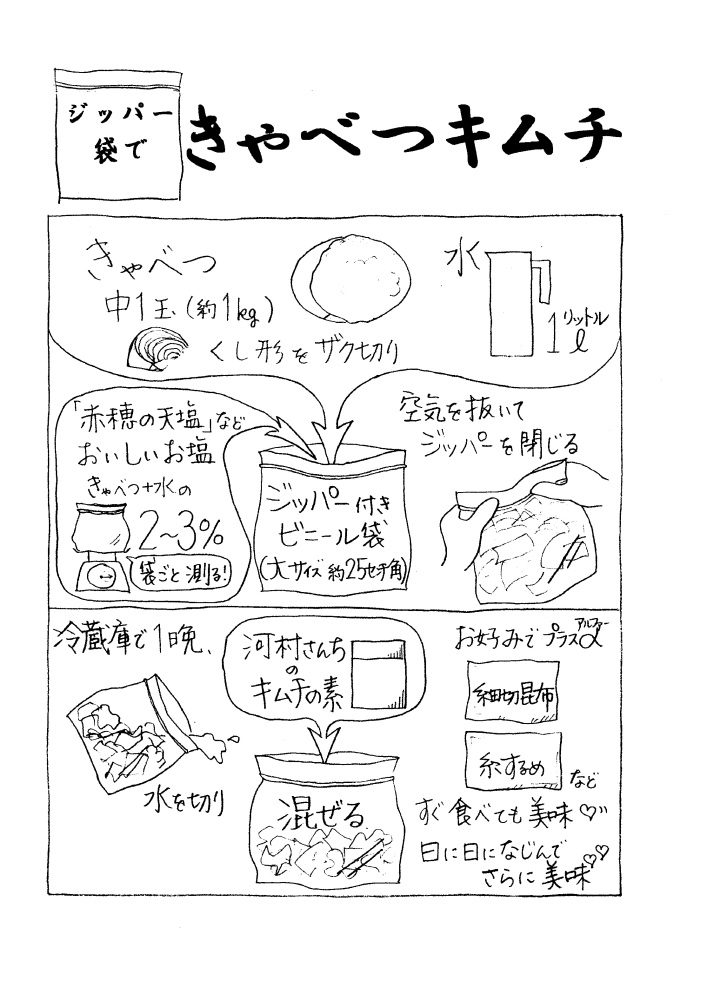 ジッパー
袋で
きゃべつキムチ
きゃべつ
中1玉(約1kg)
くし形をザク切り
水
1リットル
ℓ
「赤穂の天塩」など
おいしいお塩
きゃべつ+水の
2~3%
袋ごと測る!
ジッパー付き
ビニール袋
(大サイズ約25センチ角)
空気を抜いて
ジッパーを閉じる
冷蔵庫で1晩、
水を切り
河村さんち
の
キムチの素
混ぜる
お好みでプラスα
アルファー
細切昆布
糸するめ
など
すぐ食べても美味♡
日に日になじんで
さらに美味♡♡